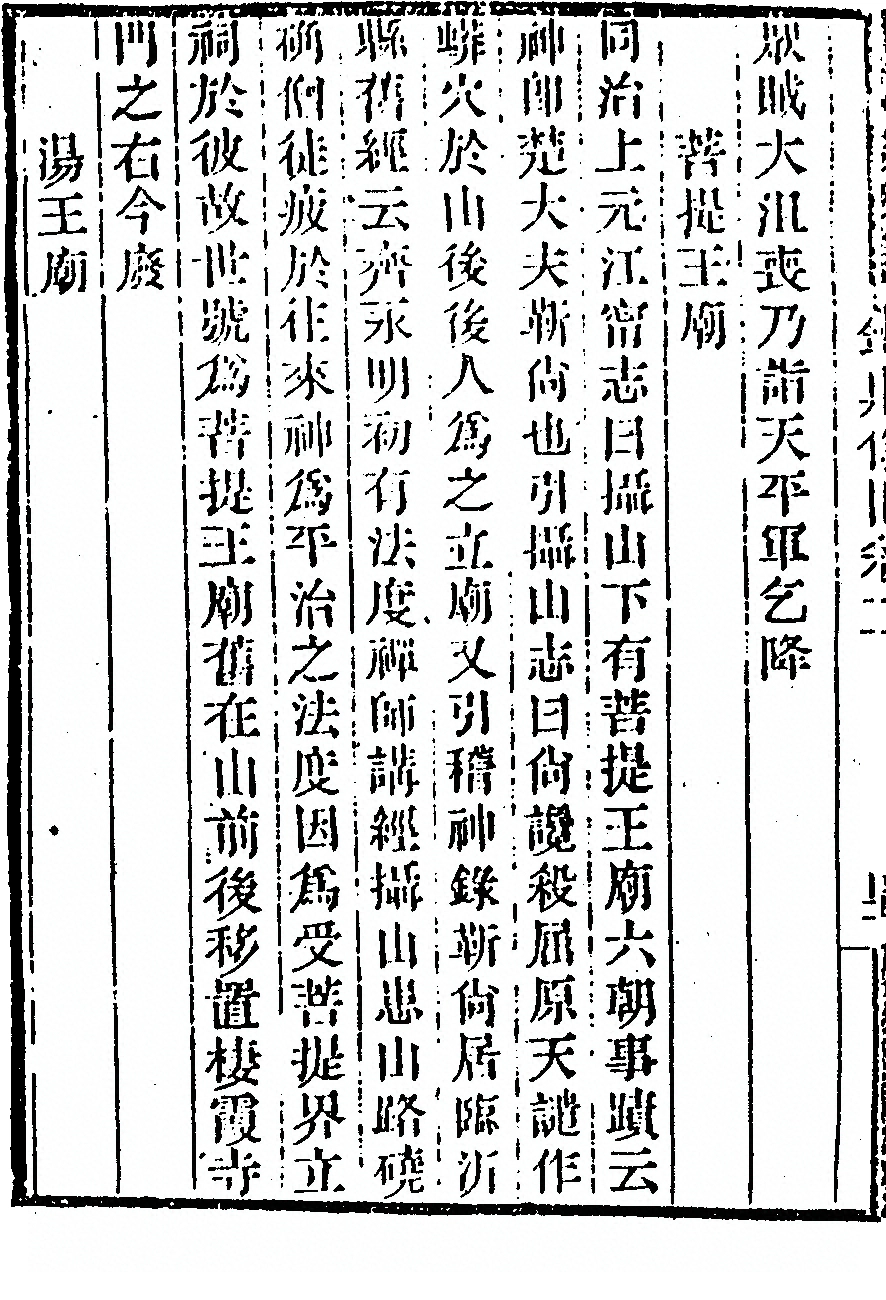 眾賊大沮喪乃詣天平軍乞降
菩提王廟
同治上元江甯志曰攝山下有菩提王廟六朝事蹟云
神卽楚大夫靳尙也引攝山志曰尙讒殺屈原天譴作
蟒穴於山後後人爲之立廟又引稽神錄靳尙居臨沂
縣舊經云齊永明初有法度禪師講經攝山患山路磽
确僧徒疲於往來神爲平治之法度因爲受菩提界立
祠於彼故世號爲菩提王廟舊在山前後移置棲霞寺
門之右今廢
湯王廟